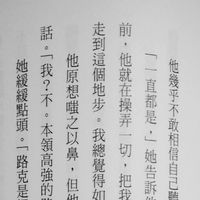 他幾乎不敢相信自己聽
「一直都是，」她告訴他
前，他就在操弄一切，把我
走到這個地步。我總覺得如
他原想嗤之以鼻，但他
話。「我？不。本領高強的路
她緩緩點頭。「路克是